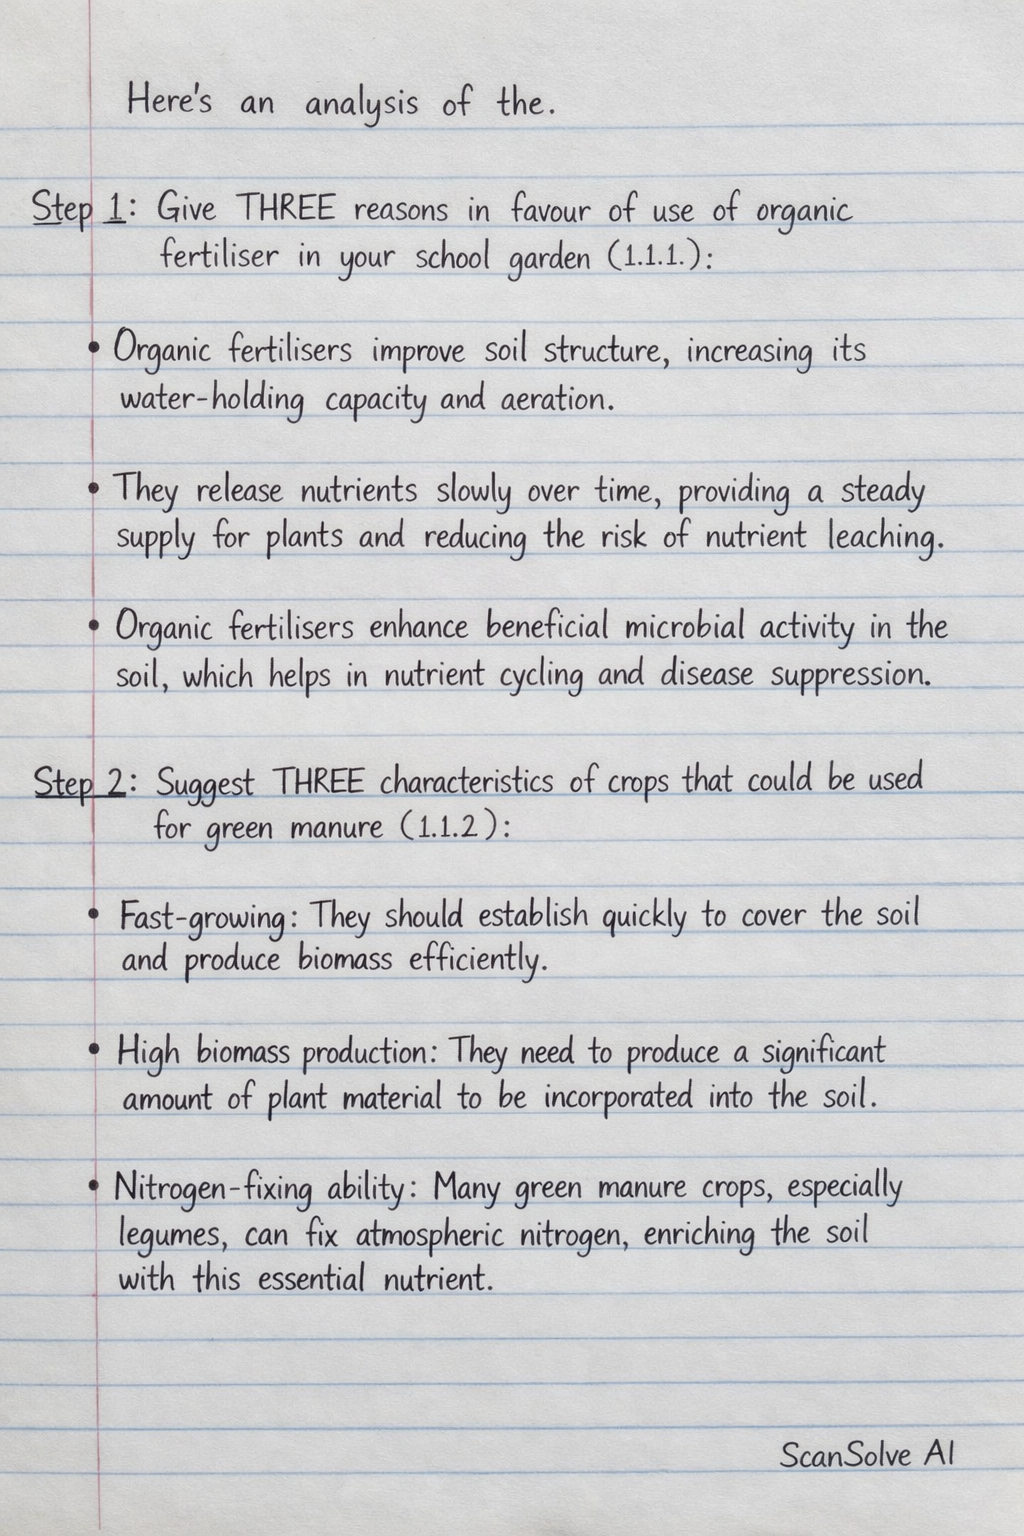 Here's an analysis of the.
Step 1: Give THREE reasons in favour of use of organic
fertiliser in your school garden (1.1.1.):
• Organic fertilisers improve soil structure, increasing its
water-holding capacity and aeration.
• They release nutrients slowly over time, providing a steady
supply for plants and reducing the risk of nutrient leaching.
• Organic fertilisers enhance beneficial microbial activity in the
soil, which helps in nutrient cycling and disease suppression.
Step 2: Suggest THREE characteristics of crops that could be used
for green manure (1.1.2):
• Fast-growing: They should establish quickly to cover the soil
and produce biomass efficiently.
• High biomass production: They need to produce a significant
amount of plant material to be incorporated into the soil.
• Nitrogen-fixing ability: Many green manure crops, especially
legumes, can fix atmospheric nitrogen, enriching the soil
with this essential nutrient.
ScanSolve AI